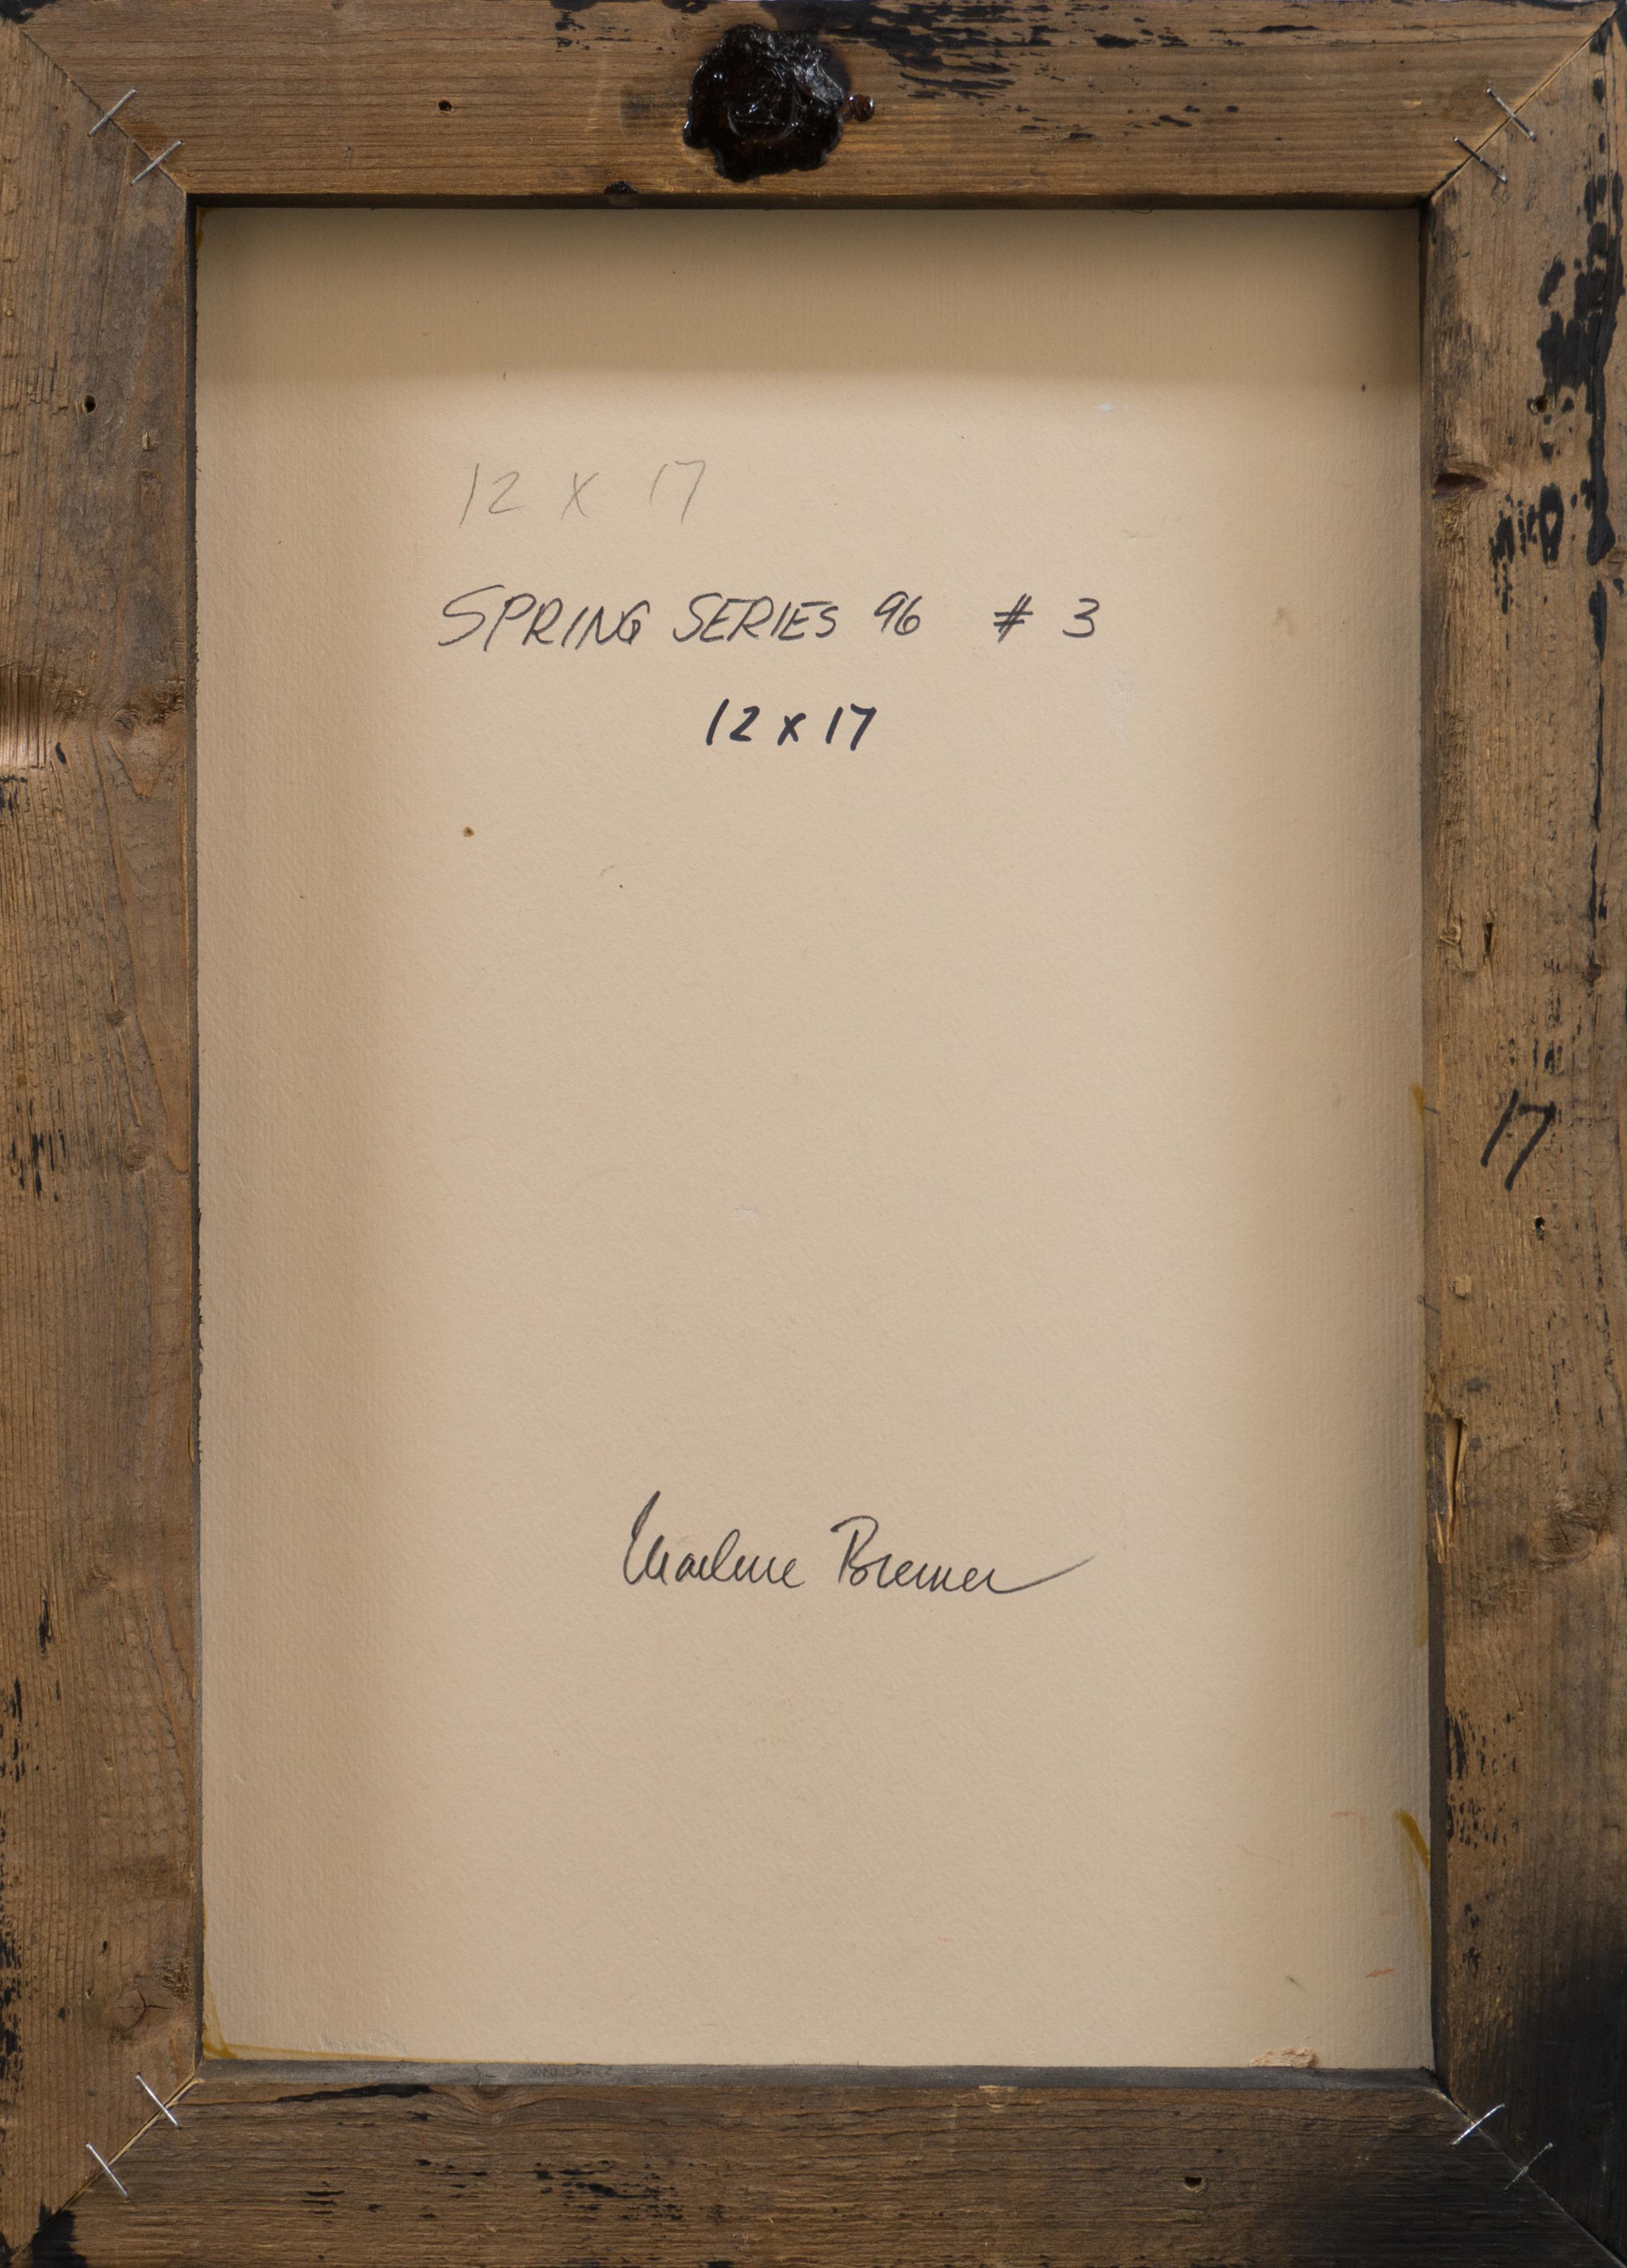 12 x 17
SPRING SERIES 96 # 3
12 x 17
17
Marlene Bremer